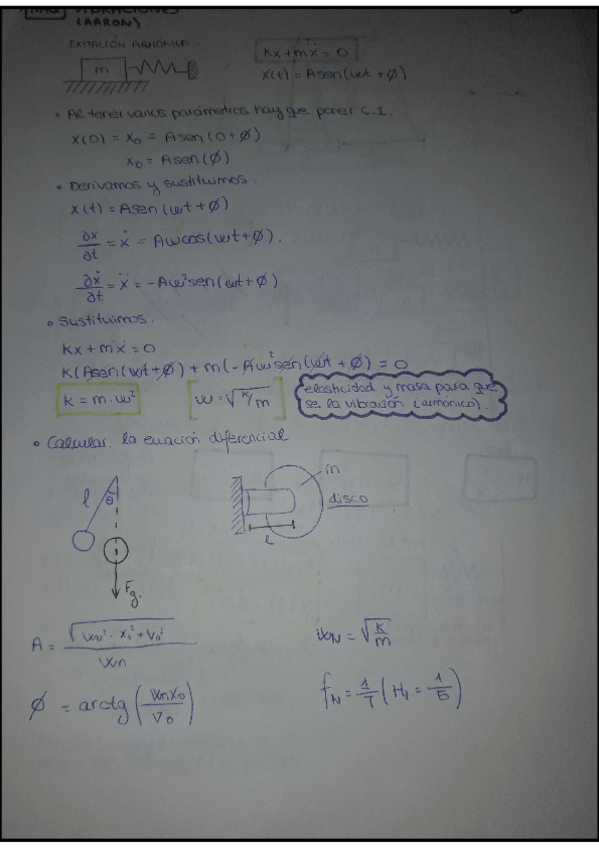 VIBRACIONES
(AARON)
EXITACIÓN ARMÓNICA.
m
Kx + mẍ = 0
x(t) = Asen(wt + ϕ)
• Al tener varios parámetros hay que poner C.I.
x(0) = x₀ = Asen(0+ϕ)
x₀ = Asen(ϕ)
• Derivamos y sustituimos.
x(t) = Asen(wt+ϕ)
∂x/∂t = ẋ = Awcos(wt+ϕ).
∂ẋ/∂t = ẍ = -Aw²sen(wt+ϕ)
• Sustituimos.
Kx + mẍ = 0
K(Asen(wt+ϕ) + m(-Aw²sen(wt+ϕ) = 0
k = m·w²
w = √K/m
elasticidad y masa para que
se la vibración (armónico).
• Calcular la ecuación diferencial
l
θ
Fg.
m
disco
l
A = √(wn²·x₀²+v₀²)/wn
wN = √(K/m)
ϕ = arctg(wnx₀/v₀)
fN = 1/T (H₁ = 1/5)